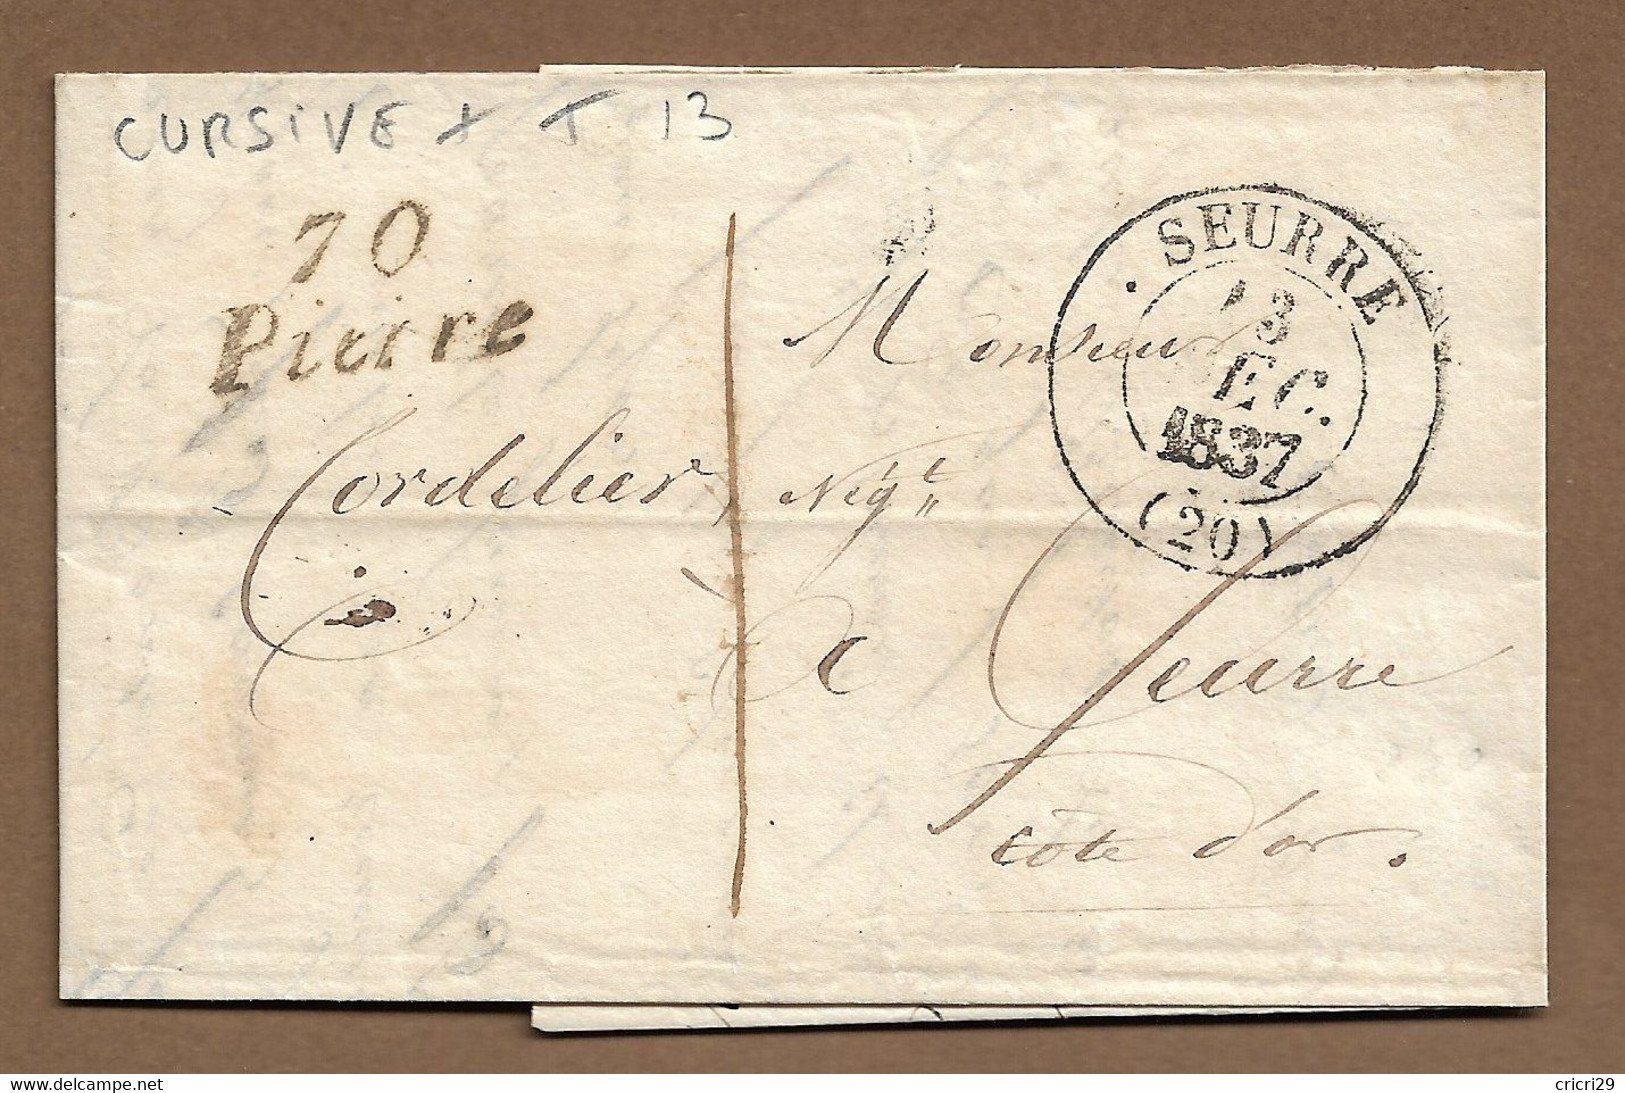 CURSIVE + T 13
70
Pierre
SEURRE
13
DEC.
1837
(20)
Monsieur
Cordelier, Négt
a Seurre
côte d'or.
cricri29